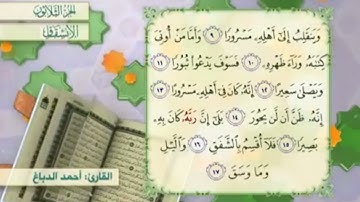 الجزء الثلاثون
الانشقاق
وَيَنقَلِبُ إِلَىٰٓ أَهْلِهِۦ مَسْرُورًا ٩ وَأَمَّا مَنْ أُوتِىَ
كِتَٰبَهُۥ وَرَآءَ ظَهْرِهِۦ ١٠ فَسَوْفَ يَدْعُوا۟ ثُبُورًا ١١
وَيَصْلَىٰ سَعِيرًا ١٢ إِنَّهُۥ كَانَ فِىٓ أَهْلِهِۦ مَسْرُورًا ١٣
إِنَّهُۥ ظَنَّ أَن لَّن يَحُورَ ١٤ بَلَىٰٓ إِنَّ رَبَّهُۥ كَانَ بِهِۦ
بَصِيرًا ١٥ فَلَآ أُقْسِمُ بِٱلشَّفَقِ ١٦ وَٱلَّيْلِ
وَمَا وَسَقَ ١٧
القارئ: أحمد الدباغ